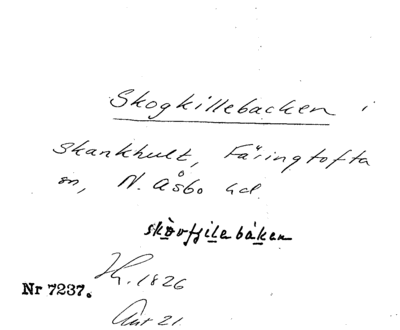 Skogkillebacken i
Skankhult, Färingtofta
sn, N. Åsbo hd.
skòvfjilebáken
H. 1826
Nr 7237.
21